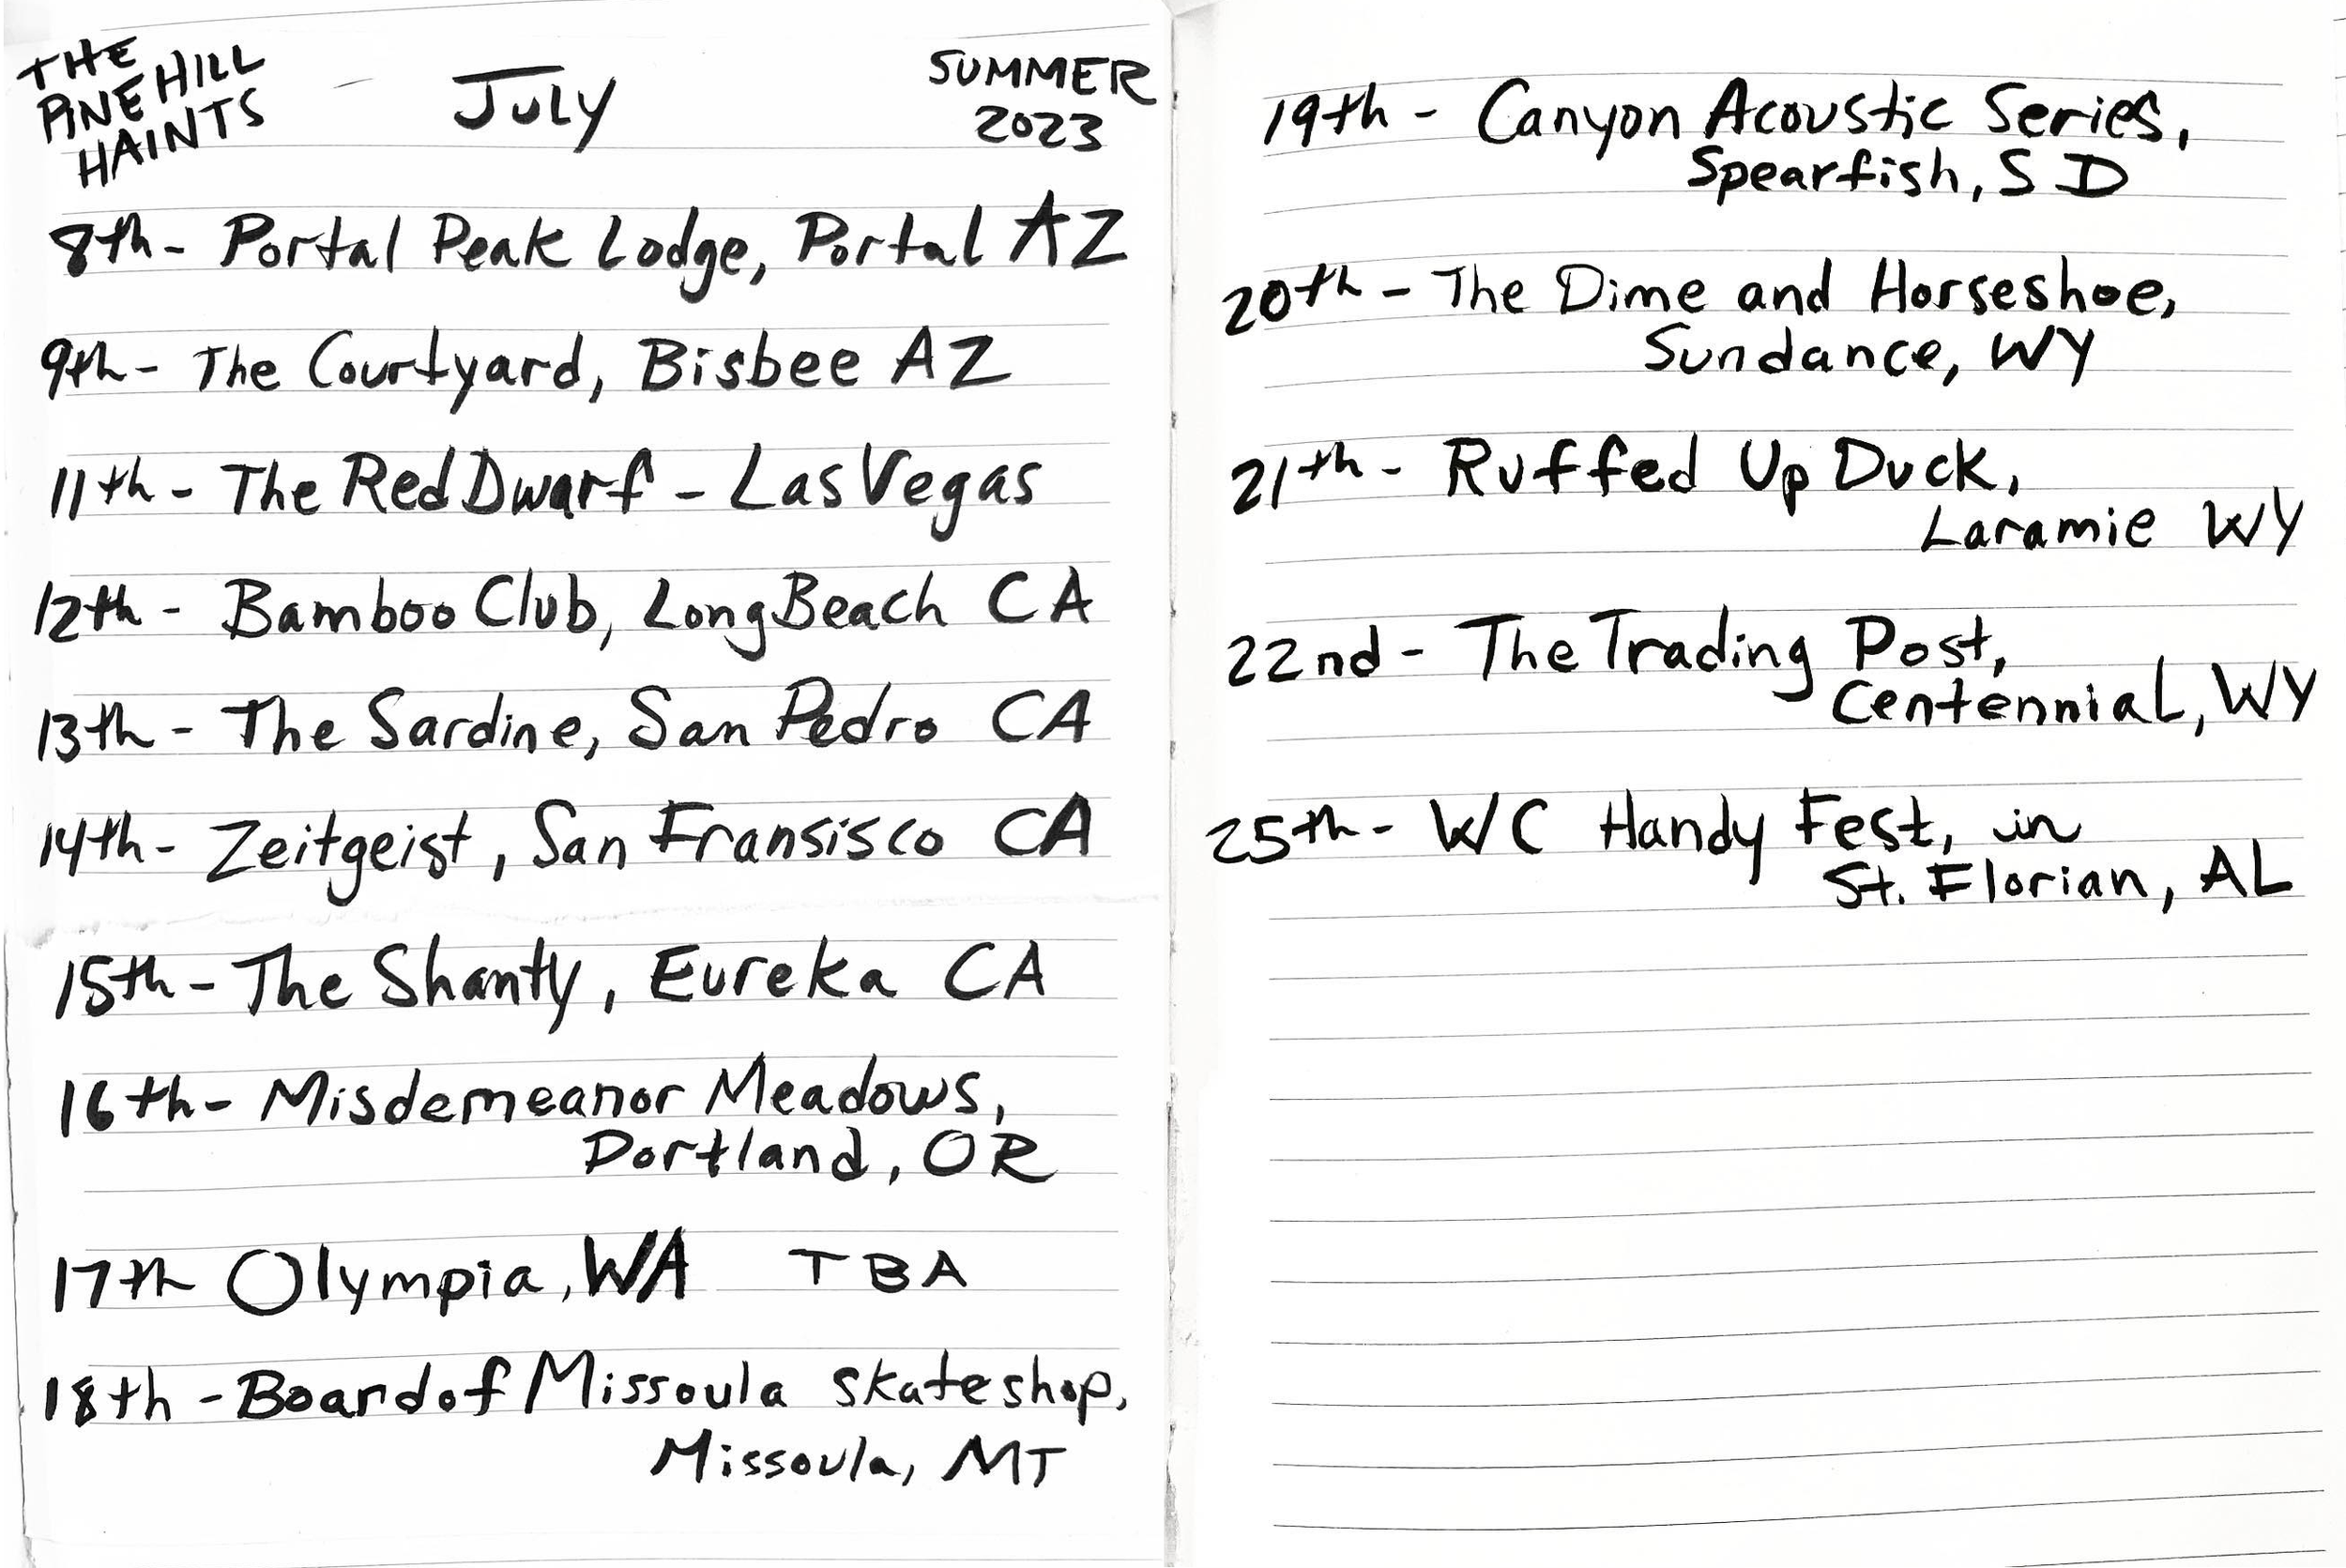 THE
PINE HILL
HAINTS
July
SUMMER
2023
8th - Portal Peak Lodge, Portal AZ
9th - The Courtyard, Bisbee AZ
11th - The Red Dwarf - Las Vegas
12th - Bamboo Club, Long Beach CA
13th - The Sardine, San Pedro CA
14th - Zeitgeist, San Fransisco CA
15th - The Shanty, Eureka CA
16th - Misdemeanor Meadows,
Portland, OR
17th Olympia, WA TBA
18th - Board of Missoula skateshop,
Missoula, MT
19th - Canyon Acoustic Series,
Spearfish, SD
20th - The Dime and Horseshoe,
Sundance, WY
21th - Ruffed Up Duck,
Laramie WY
22nd - The Trading Post,
Centennial, WY
25th - WC Handy Fest, in
St. Florian, AL